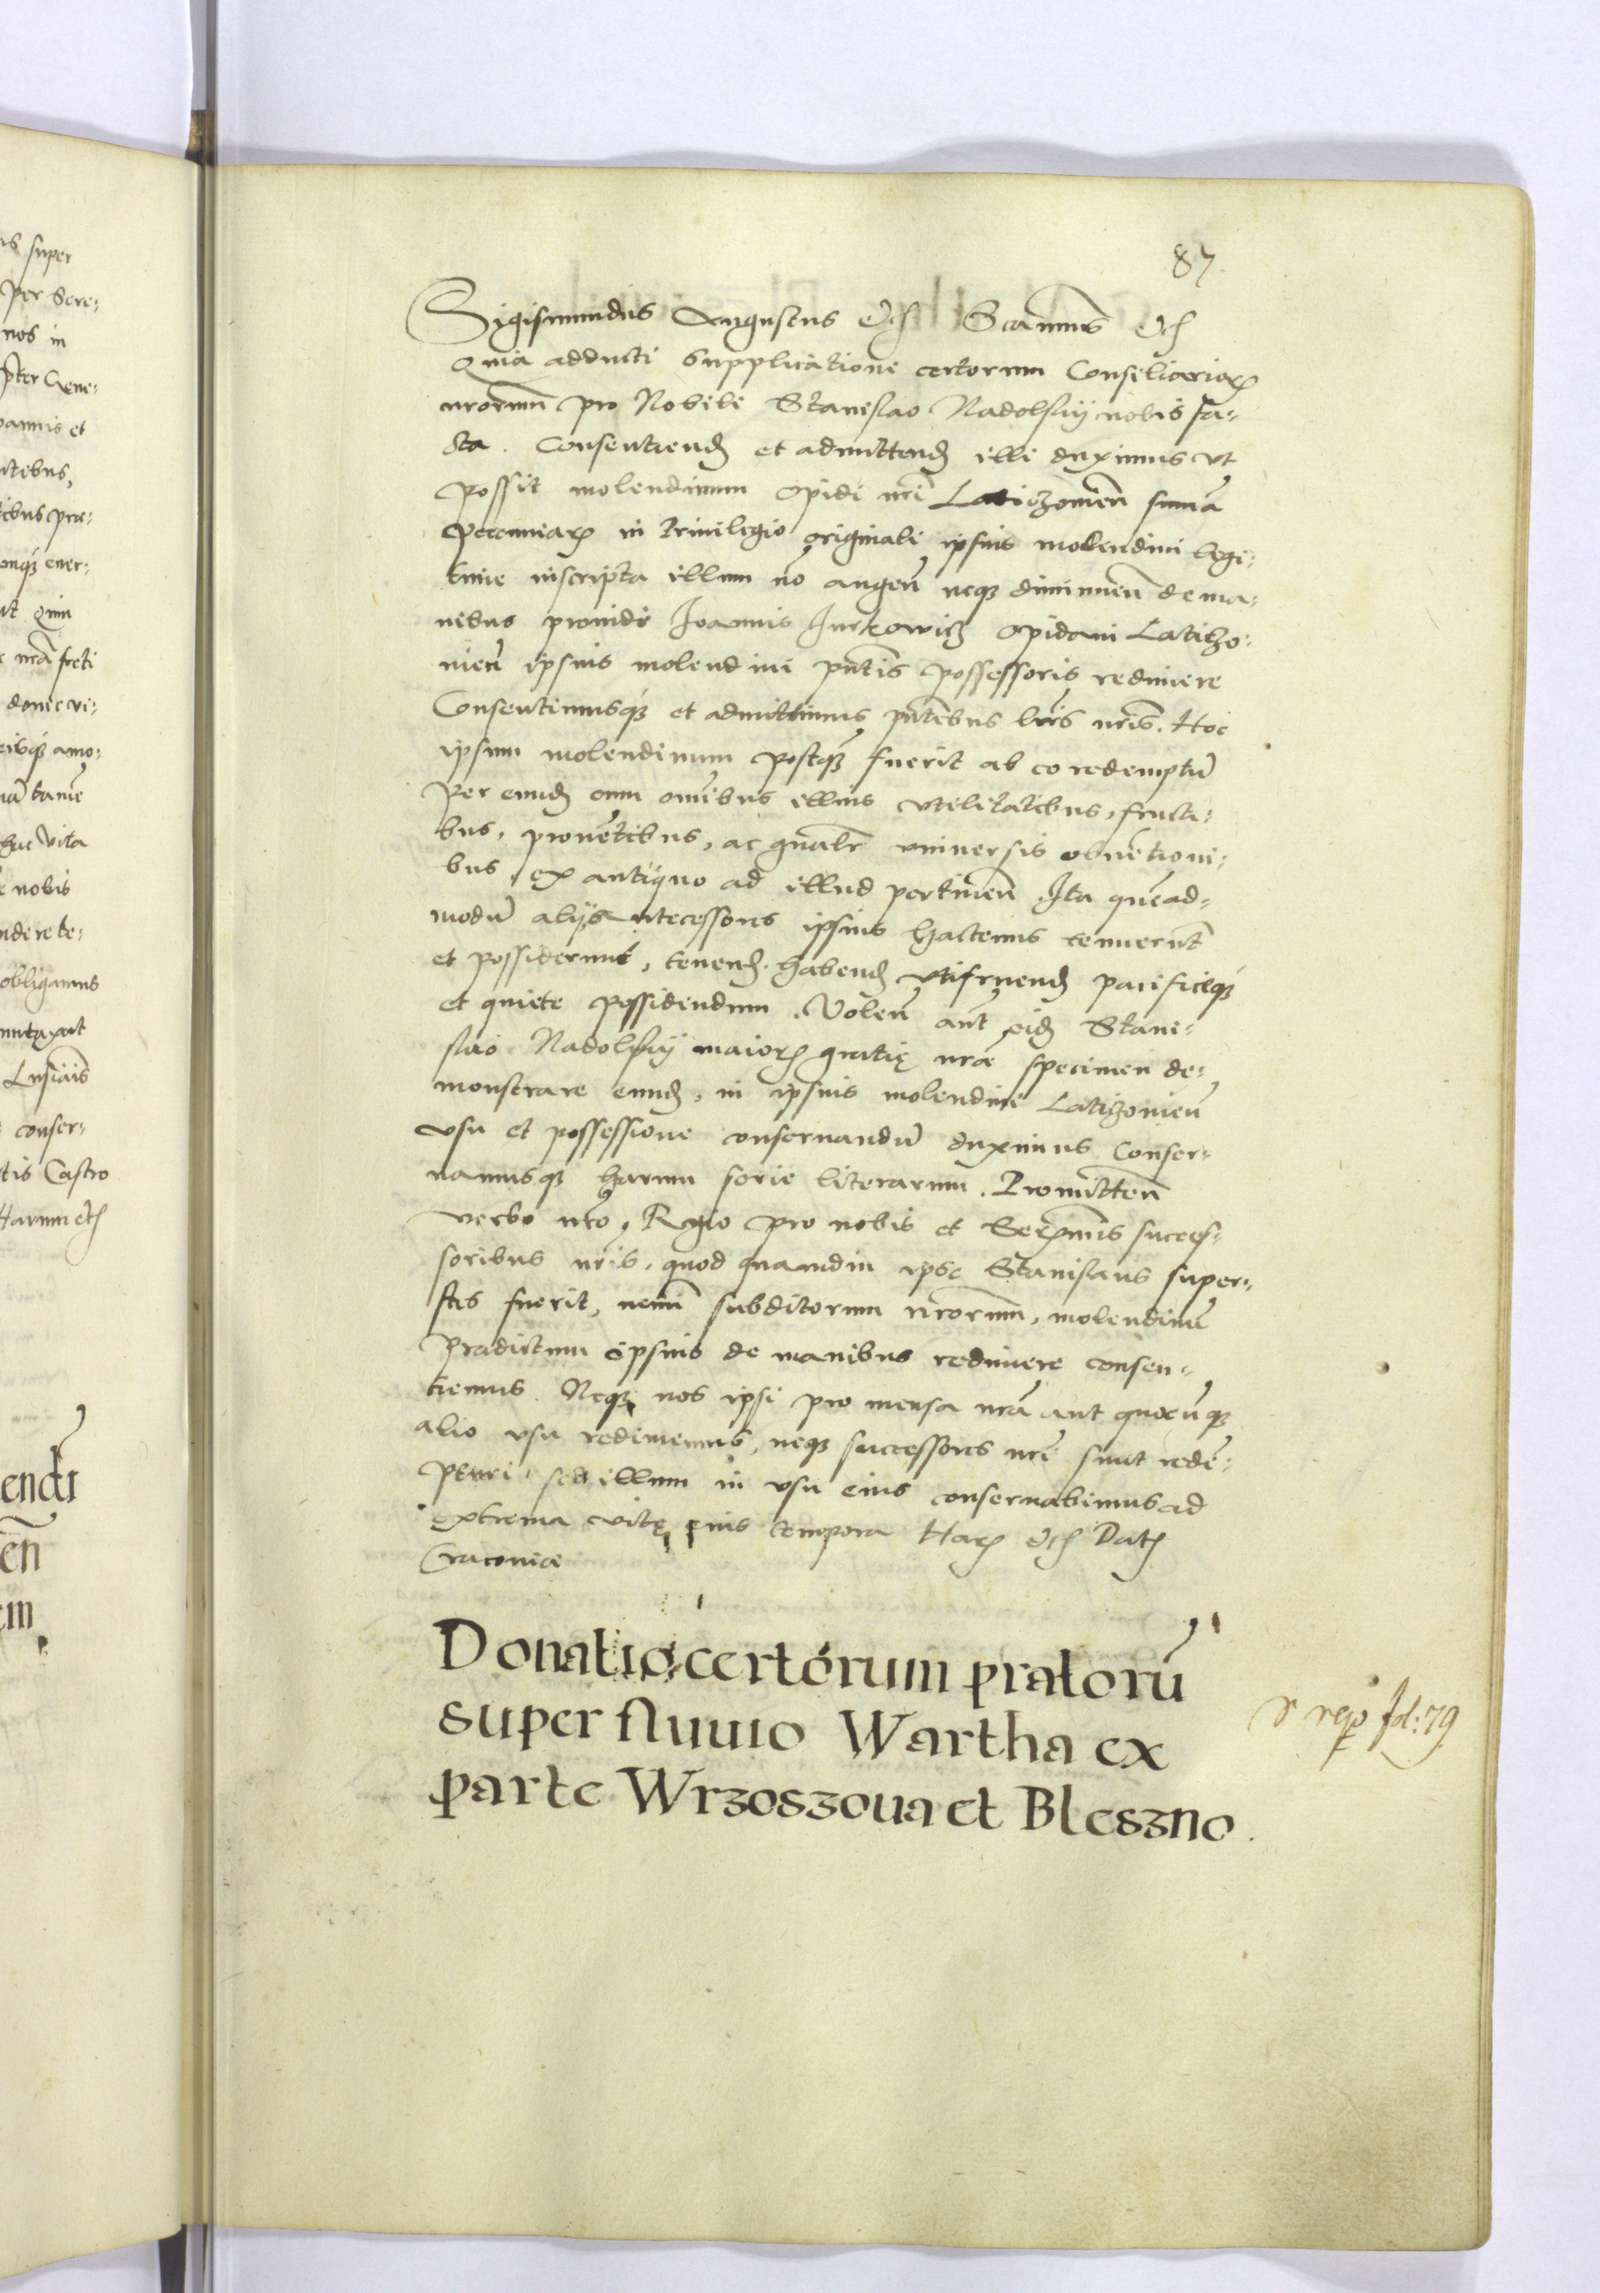 87
Sigismundus Augustus etc Scamus etc
Quia adducti supplicatione certorum Consiliariorꝝ
nrorum pro Nobili Stanislao Nadolsky nobis fa-
cta. Consentiend et admittend illi duximus ut
possit molendinum opidi nri Laticzowien summa
pecuniarꝝ in Privilegio originali ipsius molendini legi-
time inscripta illum no augen neqꝫ diminuen de ma-
nibus providi Joannis Jurkowicz opidani Laticzo-
vien ipsius molendini pntis possessoris redimere
Consentimusqꝫ et admittimus pntibus lris nris. Hoc
ipsum molendinum postqꝫ fuerit ab eo redemptu
per eund cum omnibus illius utilitatibus, fructi-
bus, proventibus, ac gnalr universis obventioni-
bus, ex antiquo ad illud pertinen Ita quead-
modu alij antecessores ipsius hactenus tenuerunt
et possiderunt, tenend. habend utifruend pacificeqꝫ
et quiete possidendum. Volen aut eid Stani-
slao Nadolsky maiorꝝ gratię nrae specimen de-
monstrare eund, in ipsius molendini Laticzowien
usu et possessione conservandu duximus Conser-
vamusqꝫ harum serie literarum. Promitten
verbo nro Regio pro nobis et Serenmis succes-
soribus nris, quod quamdiu ipse Stanislaus super-
stes fuerit, nemini subditorum nrorum, molendinu
pradictum ipsius de manibus redimere consen-
tiemus. Neqꝫ nos ipsi pro mensa nra aut quocuqꝫ
alio usu redimemus, neqꝫ successores nri sunt rede-
pturi, sed illum in usu eius conservabimus ad
extrema vitę eius tempora Harꝝ etc Datꝫ
Cracoviae
Donatio certorum pratoru
super fluvio Wartha ex
parte Wrzoszova et Bleszno.
fol: 79